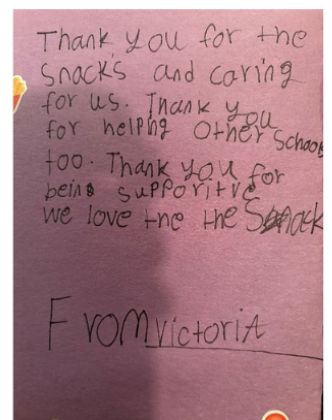 Thank you for the
snacks and caring
for us. Thank you
for helping other schools
too. Thank you for
being supporitve
we love tne the Snack
From victoria